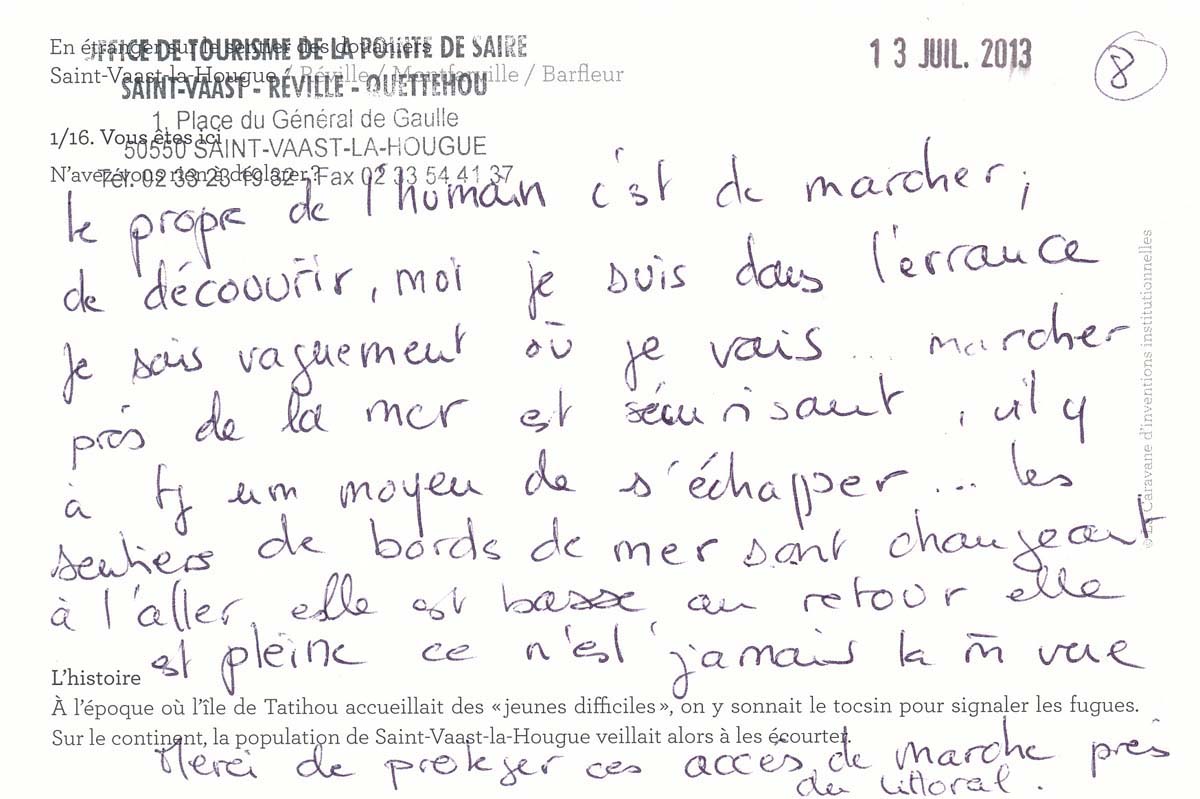 En étranger sur le sentier des douaniers
OFFICE DE TOURISME DE LA POINTE DE SAIRE
13 JUIL. 2013
8
Saint-Vaast-la-Hougue / Réville / Montfarville / Barfleur
SAINT-VAAST - RÉVILLE - QUETTEHOU
1, Place du Général de Gaulle
1/16. Vous êtes ici
50550 SAINT-VAAST-LA-HOUGUE
N'avez-vous rien à déclarer ?
Tél. 02 33 23 19 32 - Fax 02 33 54 41 37
le propre de l'humain c'est de marcher,
de découvrir, moi je suis dans l'errance
je sais vaguement où je vais ... marcher
près de la mer est sécurisant, il y
à tj un moyen de s'échapper ... les
sentiers de bords de mer sont changeant
à l'aller, elle est basse au retour elle
est pleine ce n'est jamais la m̄ vue
L'histoire
À l'époque où l'île de Tatihou accueillait des « jeunes difficiles », on y sonnait le tocsin pour signaler les fugues.
Sur le continent, la population de Saint-Vaast-la-Hougue veillait alors à les écourter.
Merci de proteger ces accès de marche près
du littoral.
© La Caravane d'inventions institutionnelles